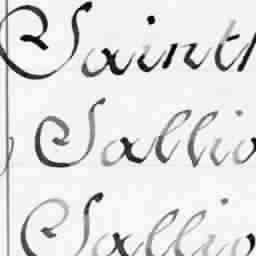 Sainth
Sallio
Sallio